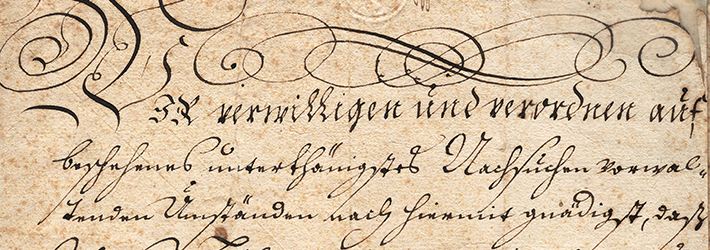 Wir verwilligen und verordnen auf
beschehenes unterthänigstes Nachsuchen vorwal=
tenden Umständen nach hiermit gnädigst, daß